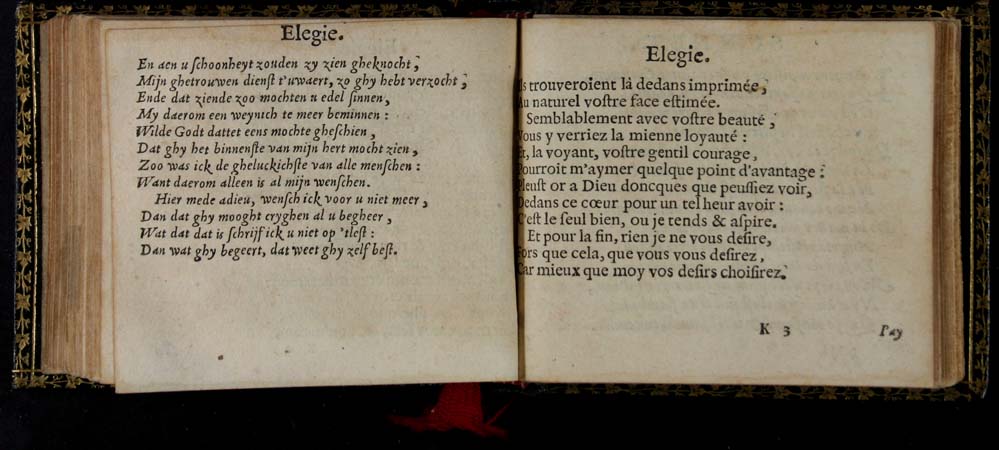 Elegie.
En aen u ſchoonheyt zouden zy zien gheknocht;
Mijn ghetrouwen dienſt t'uwaert, zo ghy hebt verzocht;
Ende dat ziende zoo mochten u edel ſinnen,
My daerom een weynich te meer beminnen:
Wilde Godt dattet eens mochte gheſchien,
Dat ghy het binnenſte van mijn hert mocht zien,
Zoo was ick de gheluckichſte van alle menſchen:
Want daerom alleen is al mijn wenſchen.
Hier mede adieu, wenſch ick voor u niet meer,
Dan dat ghy mooght cryghen al u begheer,
Wat dat dat is ſchrijf ick u niet op 'tleſt:
Dan wat ghy begeert, dat weet ghy zelf beſt.
Elegie.
Ils trouveroient là dedans imprimée;
Au naturel voſtre face eſtimée.
Semblablement avec voſtre beauté;
Vous y verriez la mienne loyauté:
Et, la voyant, voſtre gentil courage,
Pourroit m'aymer quelque point d'avantage:
Pleuſt or a Dieu doncques que peuſſiez voir,
Dedans ce cœur pour un tel heur avoir:
C'eſt le ſeul bien, ou je tends & aſpire.
Et pour la fin, rien je ne vous deſire,
Fors que cela, que vous vous deſirez,
Car mieux que moy vos deſirs choiſirez.
K 3
Pay